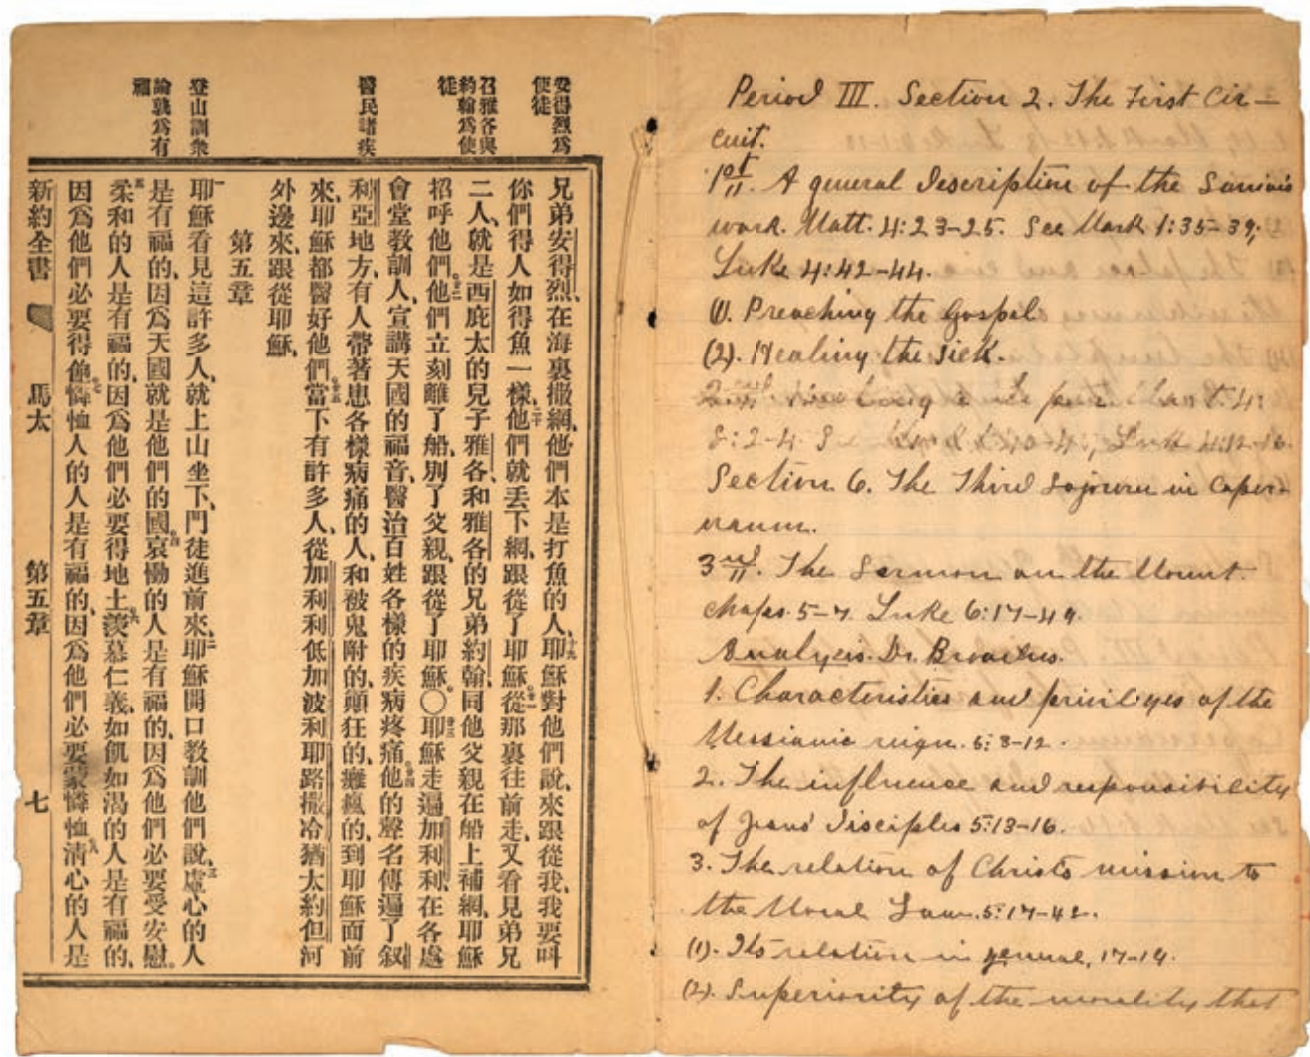 安得烈爲
使徒
召雅各與
約翰爲使
徒
醫民諸疾
登山訓衆
論孰爲有
福
兄弟安得烈、在海裏撒網、他們本是打魚的人、耶穌對他們說、來跟從我、我要呌
你們得人如得魚一樣、他們就丟下網、跟從了耶穌、從那裏往前走、又看見弟兄
二人、就是西庇太的兒子雅各、和雅各的兄弟約翰、同他父親在船上補網、耶穌
招呼他們、他們立刻離了船、別了父親、跟從了耶穌。〇耶穌走遍加利利、在各處
會堂教訓人、宣講天國的福音、醫治百姓各樣的疾病疼痛、他的聲名傳遍了叙
利亞地方、有人帶著患各樣病痛的人、和被鬼附的、顚狂的、癱瘋的、到耶穌面前
來、耶穌都醫好他們、當下有許多人、從加利利低加波利耶路撒冷猶太約但河
外邊來、跟從耶穌、
第五章
一耶穌看見這許多人、就上山坐下、門徒進前來、二耶穌開口教訓他們說、三虛心的人
是有福的、因爲天國就是他們的國、四哀慟的人是有福的、因爲他們必要受安慰。
五柔和的人是有福的、因爲他們必要得地土、六羨慕仁義、如飢如渴的人是有福的、
因爲他們必要得飽、七憐恤人的人是有福的、因爲他們必要蒙憐恤、八淸心的人是
新約全書 馬太 第五章 七
Period III. Section 2. The First Cir-
cuit.
1st. A general description of the Savior's
work. Matt. 4:23-25. See Mark 1:35-39;
Luke 4:42-44.
(1). Preaching the Gospel.
(2). Healing the sick.
Section 6. The Third Sojourn in Caper-
naum.
3rd. The Sermon on the Mount.
chaps. 5-7. Luke 6:17-49.
Analysis. Dr. Broadus.
1. Characteristics and privileges of the
Messianic reign. 5:3-12.
2. The influence and responsibility
of Jesus' disciples 5:13-16.
3. The relation of Christ's mission to
the Moral Law. 5:17-42.
(1). Its relation in general, 17-19.
(2). Superiority of the morality that